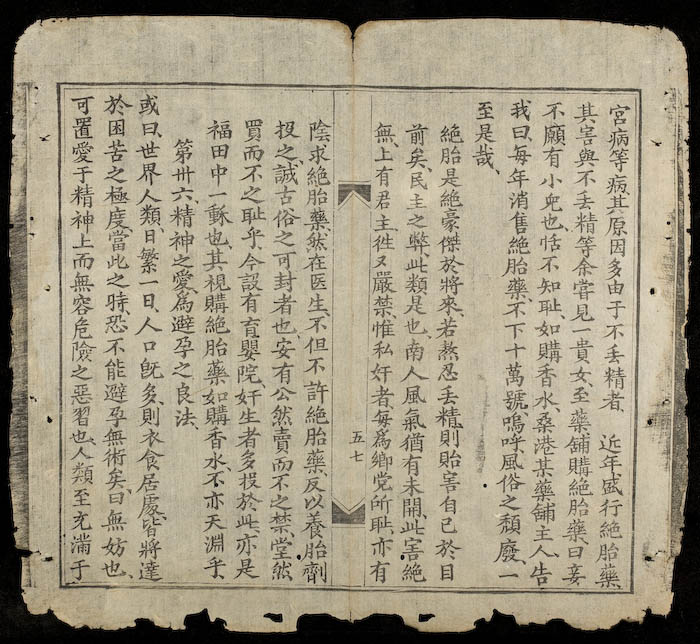 宮病等病其原因多由于不丢精者、　近年盛行絶胎藥、
其害與不丢精等余嘗見一貴女、至藥舖購絶胎藥、曰妾
不願有小兒也恬不知耻、如購香水、桑港某藥舖主人、告
我曰、每年消售絶胎藥、不下十萬號、嗚呼風俗之頹廢、一
至是哉、
絶胎是絶豪傑於將來、若熬忍丢精、則貽害自己於目
前矣、民主之弊、此類是也、南人風氣猶有未開、此害絶
無、上有君主、徃又嚴禁、惟私奸者、每爲鄉党所耻、亦有
五七
陰求絶胎藥、然在医生、不但不許絶胎藥、反以養胎劑
投之、誠古俗之可封者也、安有公然賣而不之禁、堂然
買而不之耻乎、今設有育嬰院、奸生者多投於此、亦是
福田中一穌也、其視購絶胎藥、如購香水、不亦天淵乎、
第卅六、精神之愛爲避孕之良法、
或曰、世界人類、日繁一日、人口既多、則衣食居處、皆將達
於困苦之極度、當此之時、恐不能避孕無術矣、曰無妨也、
可置愛于精神上而無容危險之惡習也、人類至充滿于